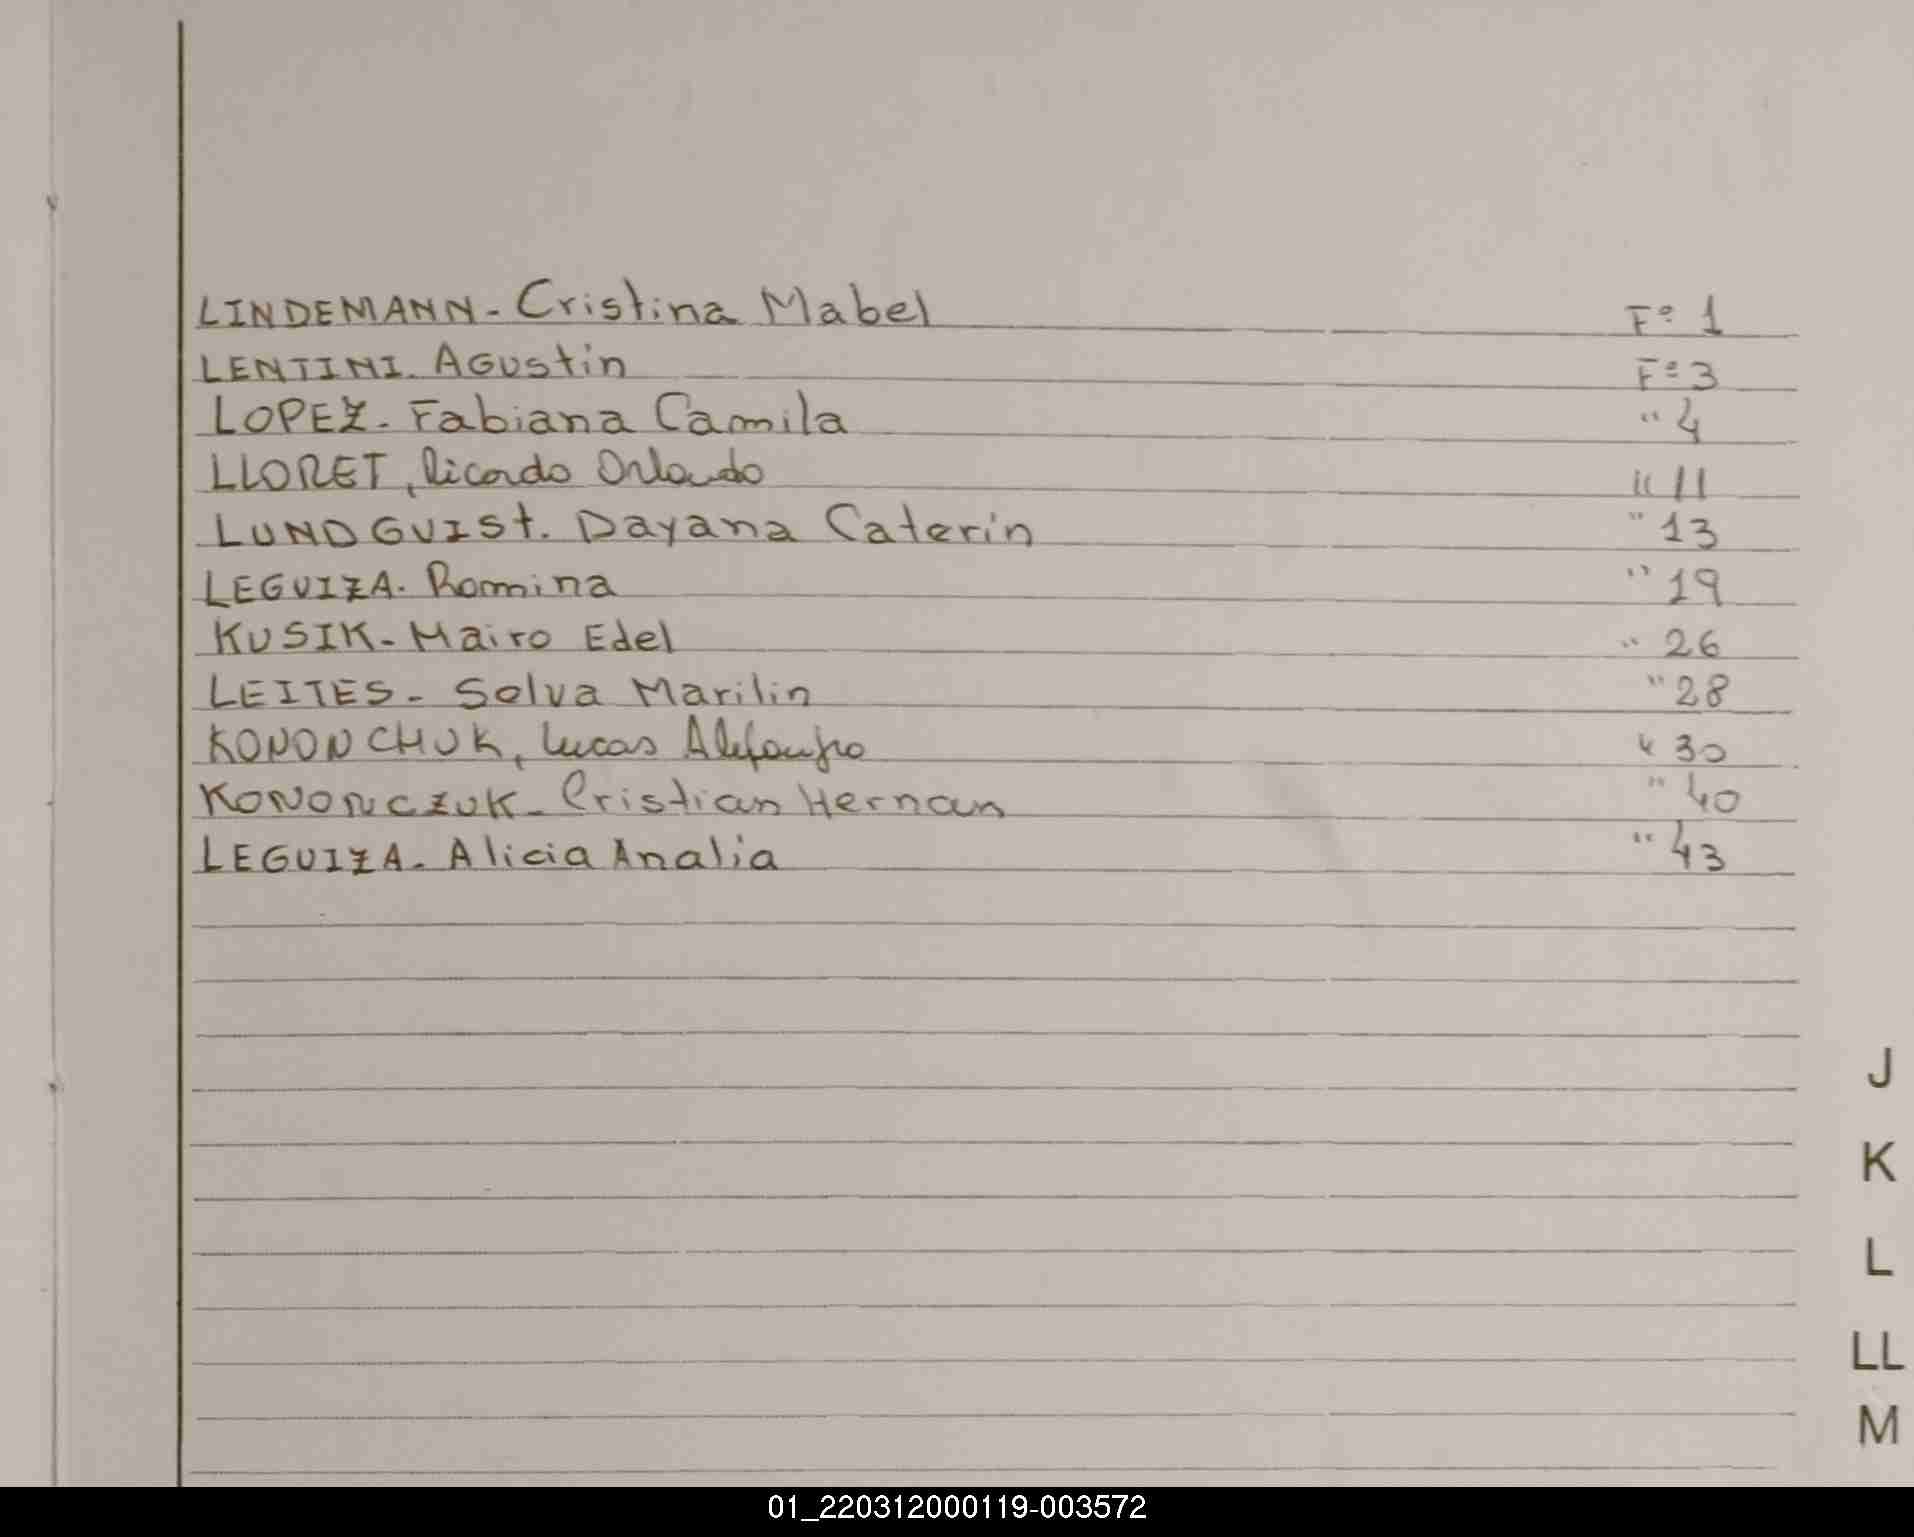 LINDEMANN- Cristina Mabel Fº 1
LENTINI. Agustin Fº 3
LOPEZ- Fabiana Camila " 4
LLORET, Ricardo Orlando " 11
LUNDGUISt. Dayana Caterin " 13
LEGUIZA. Romina " 19
KUSIK- Mairo Edel " 26
LEITES- Selva Marilin " 28
KONONCHUK, Lucas " 30
KONONCZUK- Cristian Hernan " 40
LEGUIZA- Alicia Analia " 43
J
K
L
LL
M
01_220312000119-003572